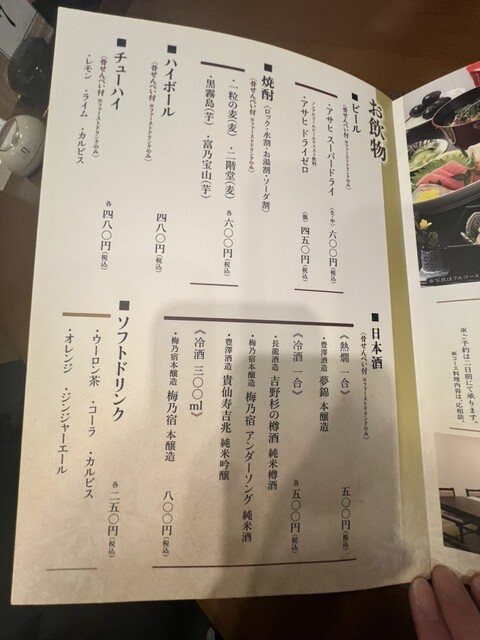 お飲物
■ビール
(骨せんべい付 ※ファーストドリンクのみ)
・アサヒ スーパードライ (生・中) 六〇〇円(税込)
ノンアルコールビールテイスト飲料
・アサヒ ドライゼロ (瓶) 四五〇円(税込)
■焼酎(ロック・水割・お湯割・ソーダ割)
(骨せんべい付 ※ファーストドリンクのみ)
・一粒の麦(麦) ・二階堂(麦) 各 六〇〇円(税込)
・黒霧島(芋) ・富乃宝山(芋)
■ハイボール
(骨せんべい付 ※ファーストドリンクのみ) 四八〇円(税込)
■チューハイ
(骨せんべい付 ※ファーストドリンクのみ)
・レモン ・ライム ・カルピス 各 四八〇円(税込)
■日本酒
(骨せんべい付 ※ファーストドリンクのみ)
《熱燗 一合》
・豊澤酒造 夢錦 本醸造 五〇〇円(税込)
《冷酒 一合》 各 五〇〇円(税込)
・長龍酒造 吉野杉の樽酒 純米樽酒
・梅乃宿本醸造 梅乃宿 アンダーソング 純米酒
・豊澤酒造 貴仙寿吉兆 純米吟醸
《冷酒 三〇〇ml》
・梅乃宿本醸造 梅乃宿 本醸造 八〇〇円(税込)
■ソフトドリンク
・ウーロン茶 ・コーラ ・カルピス 各 二五〇円(税込)
・オレンジ ・ジンジャーエール
※写真はフルコース
※ご予約は二日前にて承ります。
※コース料理内容は、応相談。